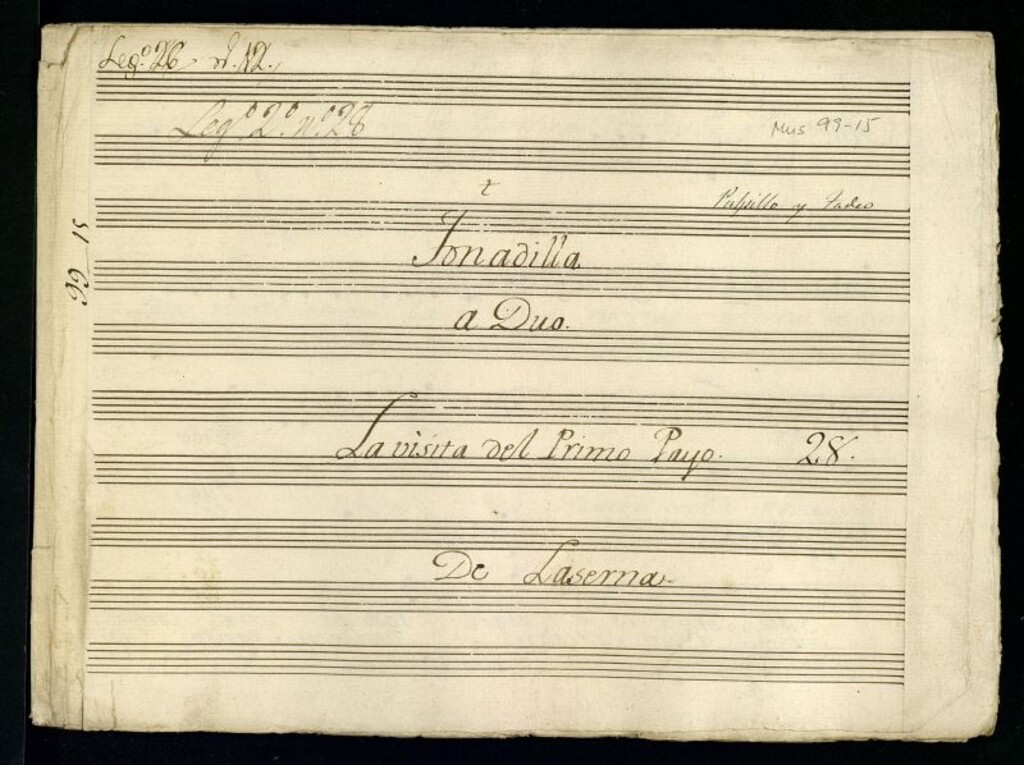 Leg.º 26 n.12.
Leg.º 2.º n.º 28
Mus 99-15
t
Pulpillo y Tadeo
Tonadilla
a Duo.
La visita del Primo Payo. 28.
De Laserna.